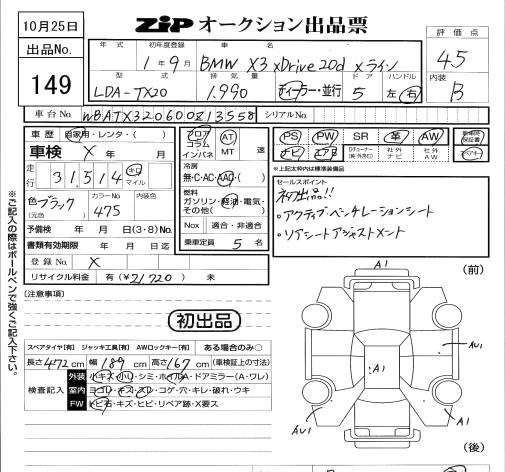 10月25日
ZiP オークション出品票
出品No.
149
年式 初年度登録 車名
1年9月 BMW X3 xDrive20d xライン
型式 排気量 ドア ハンドル
LDA-TX20 1,990 ディーラー・並行 5 左 右
評価点
4.5
内装
B
車台No. WBATX320600B13558 シリアルNo.
車歴 自家用・レンタ・( )
車検 X 年 月
走行 31,514 キロ マイル
色 ブラック (元色)
カラーNo 475
内装色
予備検 年 月 日(3・8)No.
書類有効期限 年 月 日迄
登録No. X
リサイクル料金 有(¥21,720) 未
フロア コラム インパネ
AT MT 速
冷房
無・C・AC・AAC( )
燃料
ガソリン・軽油・電気・その他( )
Nox 適合・非適合
乗車定員 5 名
PS PW SR 革 AW
ナビ エアB TVチューナー(純・外含む) 社外ナビ 社外AW
新車時保証書
*上記太枠内は標準装備品
セールスポイント
初出品!!
・アクティブ・ベンチレーションシート
・リアシートアジャストメント
※ご記入の際はボールペンで強くご記入下さい。
[注意事項]
初出品
スペアタイヤ[有] ジャッキ工具[有] AWロックキー[有] ある場合のみ○
長さ 472 cm 幅 189 cm 高さ 167 cm (車検証上の寸法)
検査記入
外装 小キズ・小凹・シミ・ホイルA・ドアミラー(A・ワレ)
室内 ヨゴレ・キズ・スレ・コゲ・穴・キレ・破れ・ウキ
FW トビ石・キズ・ヒビ・リペア跡・X要ス
A1
(前)
AU1
A1
AU1
A1
A1
(後)